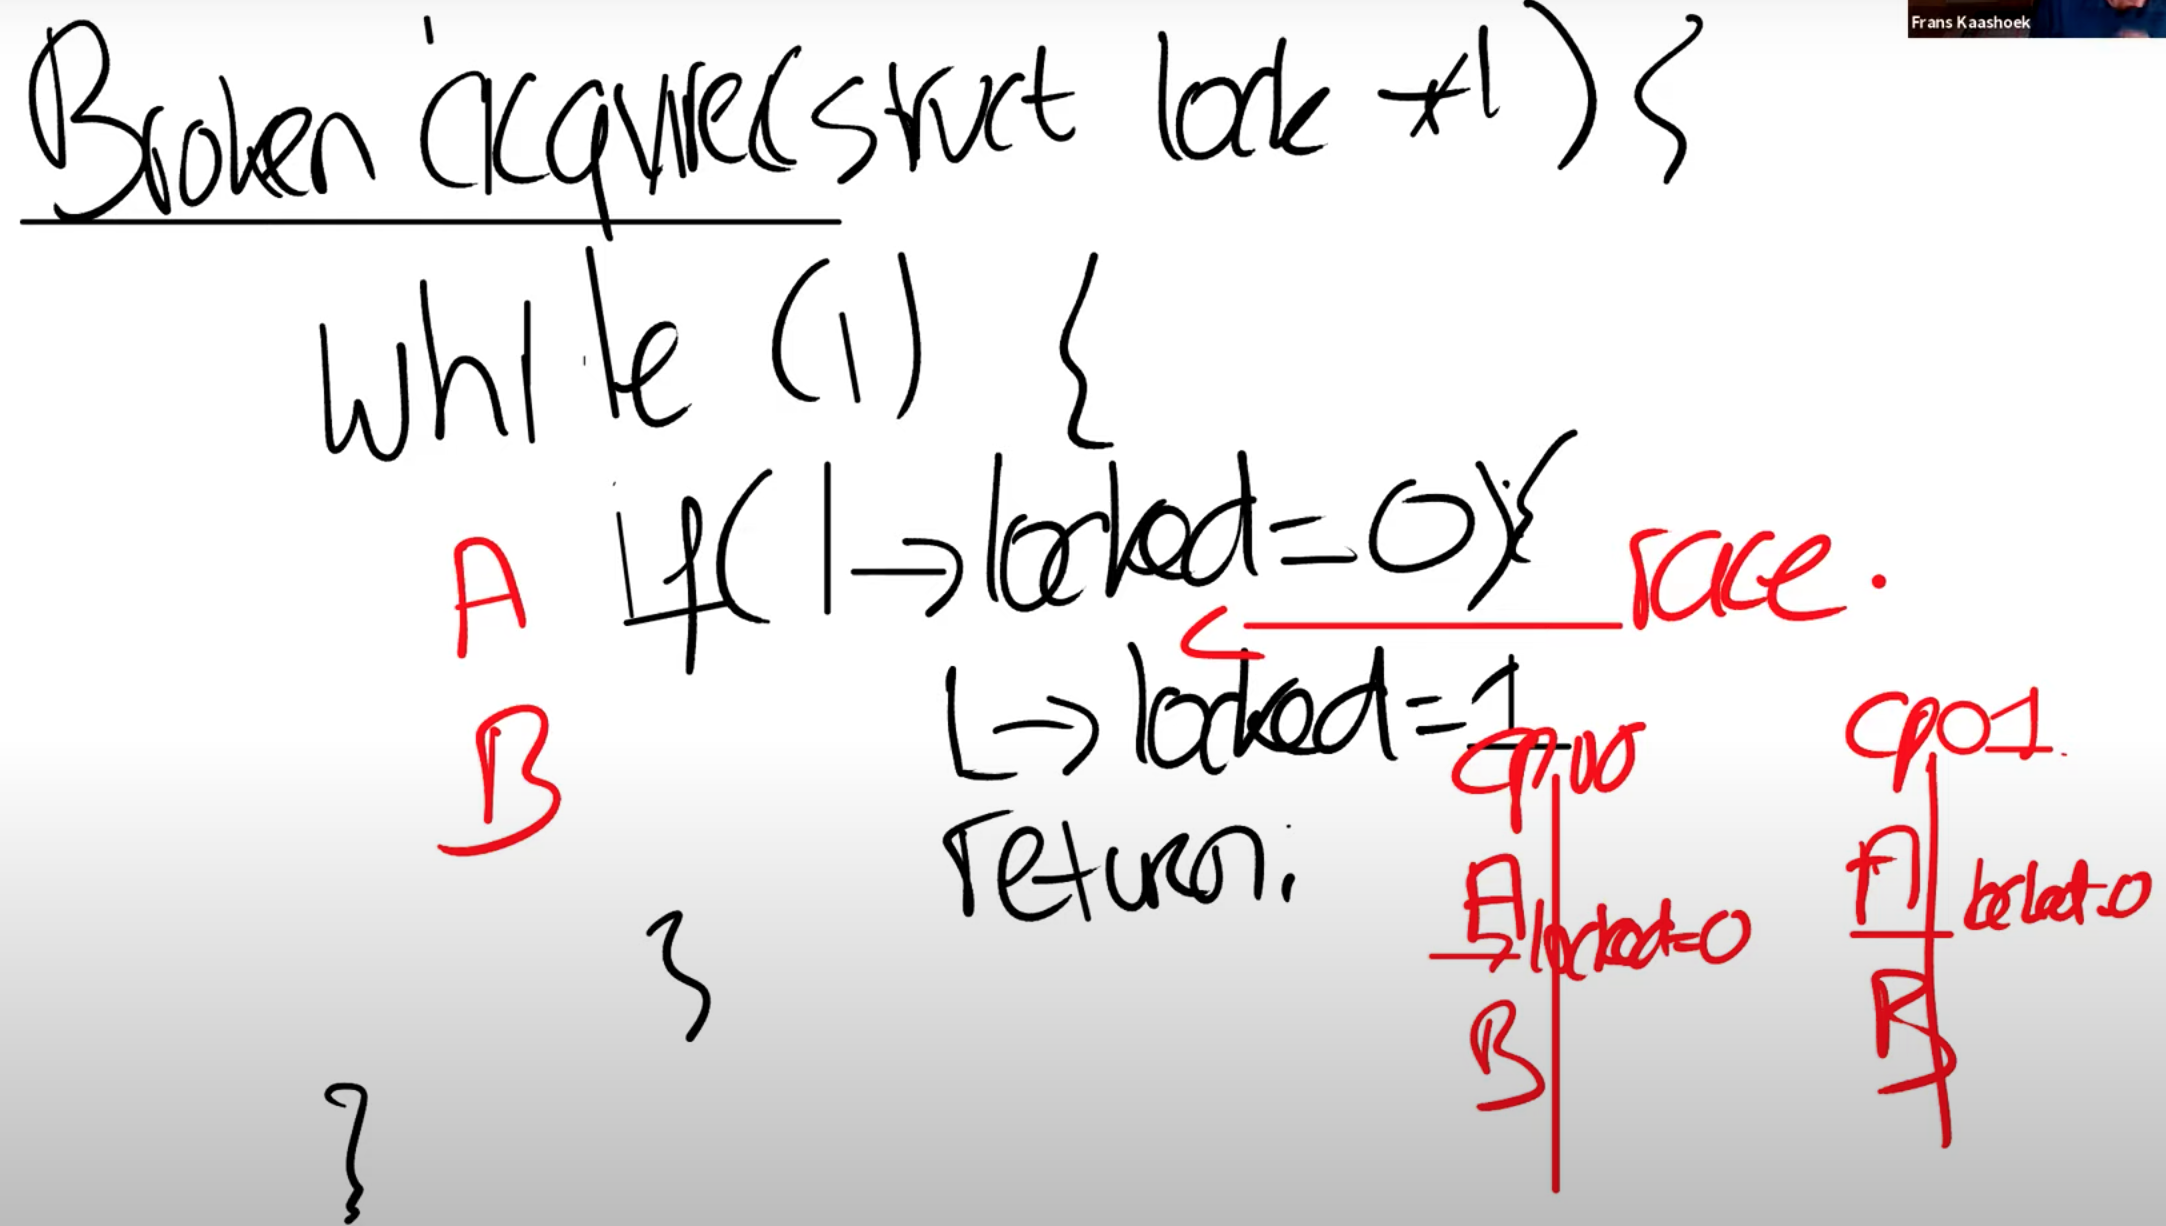 Frans Kaashoek
Broken acquire(struct lock *l) {
while (1) {
A if(l→locked=0){
race.
B L→locked=1
return;
}
}
cpu0
A locked=0
B
cpu1
A locked=0
B